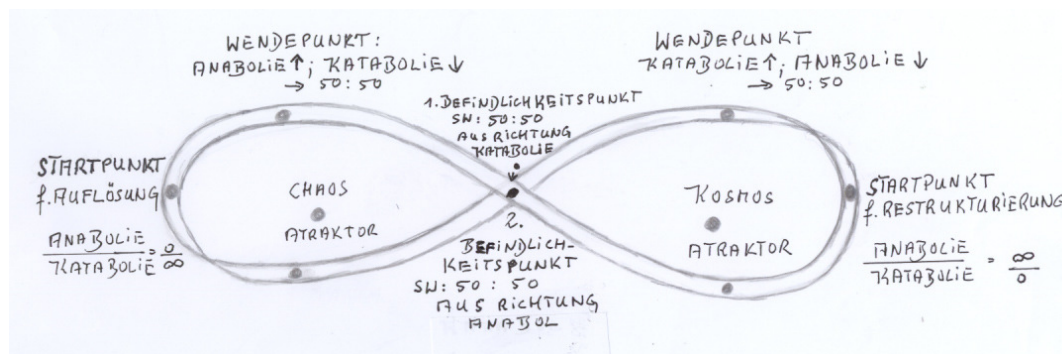 WENDEPUNKT:
ANABOLIE↑; KATABOLIE↓
→ 50:50
WENDEPUNKT
KATABOLIE↑; ANABOLIE↓
→ 50:50
1. BEFINDLICHKEITSPUNKT
SW: 50:50
AUS RICHTUNG
KATABOLIE
STARTPUNKT
f. AUFLÖSUNG
ANABOLIE
KATABOLIE
= 0
∞
CHAOS
ATRAKTOR
2.
BEFINDLICH-
KEITSPUNKT
SW: 50 : 50
AUS RICHTUNG
ANABOL
KOSMOS
ATRAKTOR
STARTPUNKT
f. RESTRUKTURIERUNG
ANABOLIE
KATABOLIE
= ∞
0